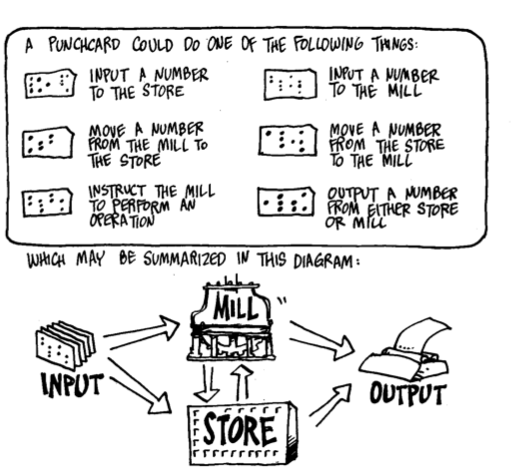 A PUNCHCARD COULD DO ONE OF THE FOLLOWING THINGS:
INPUT A NUMBER
TO THE STORE
INPUT A NUMBER
TO THE MILL
MOVE A NUMBER
FROM THE MILL TO
THE STORE
MOVE A NUMBER
FROM THE STORE
TO THE MILL
INSTRUCT THE MILL
TO PERFORM AN
OPERATION
OUTPUT A NUMBER
FROM EITHER STORE
OR MILL
WHICH MAY BE SUMMARIZED IN THIS DIAGRAM:
MILL
INPUT
OUTPUT
STORE